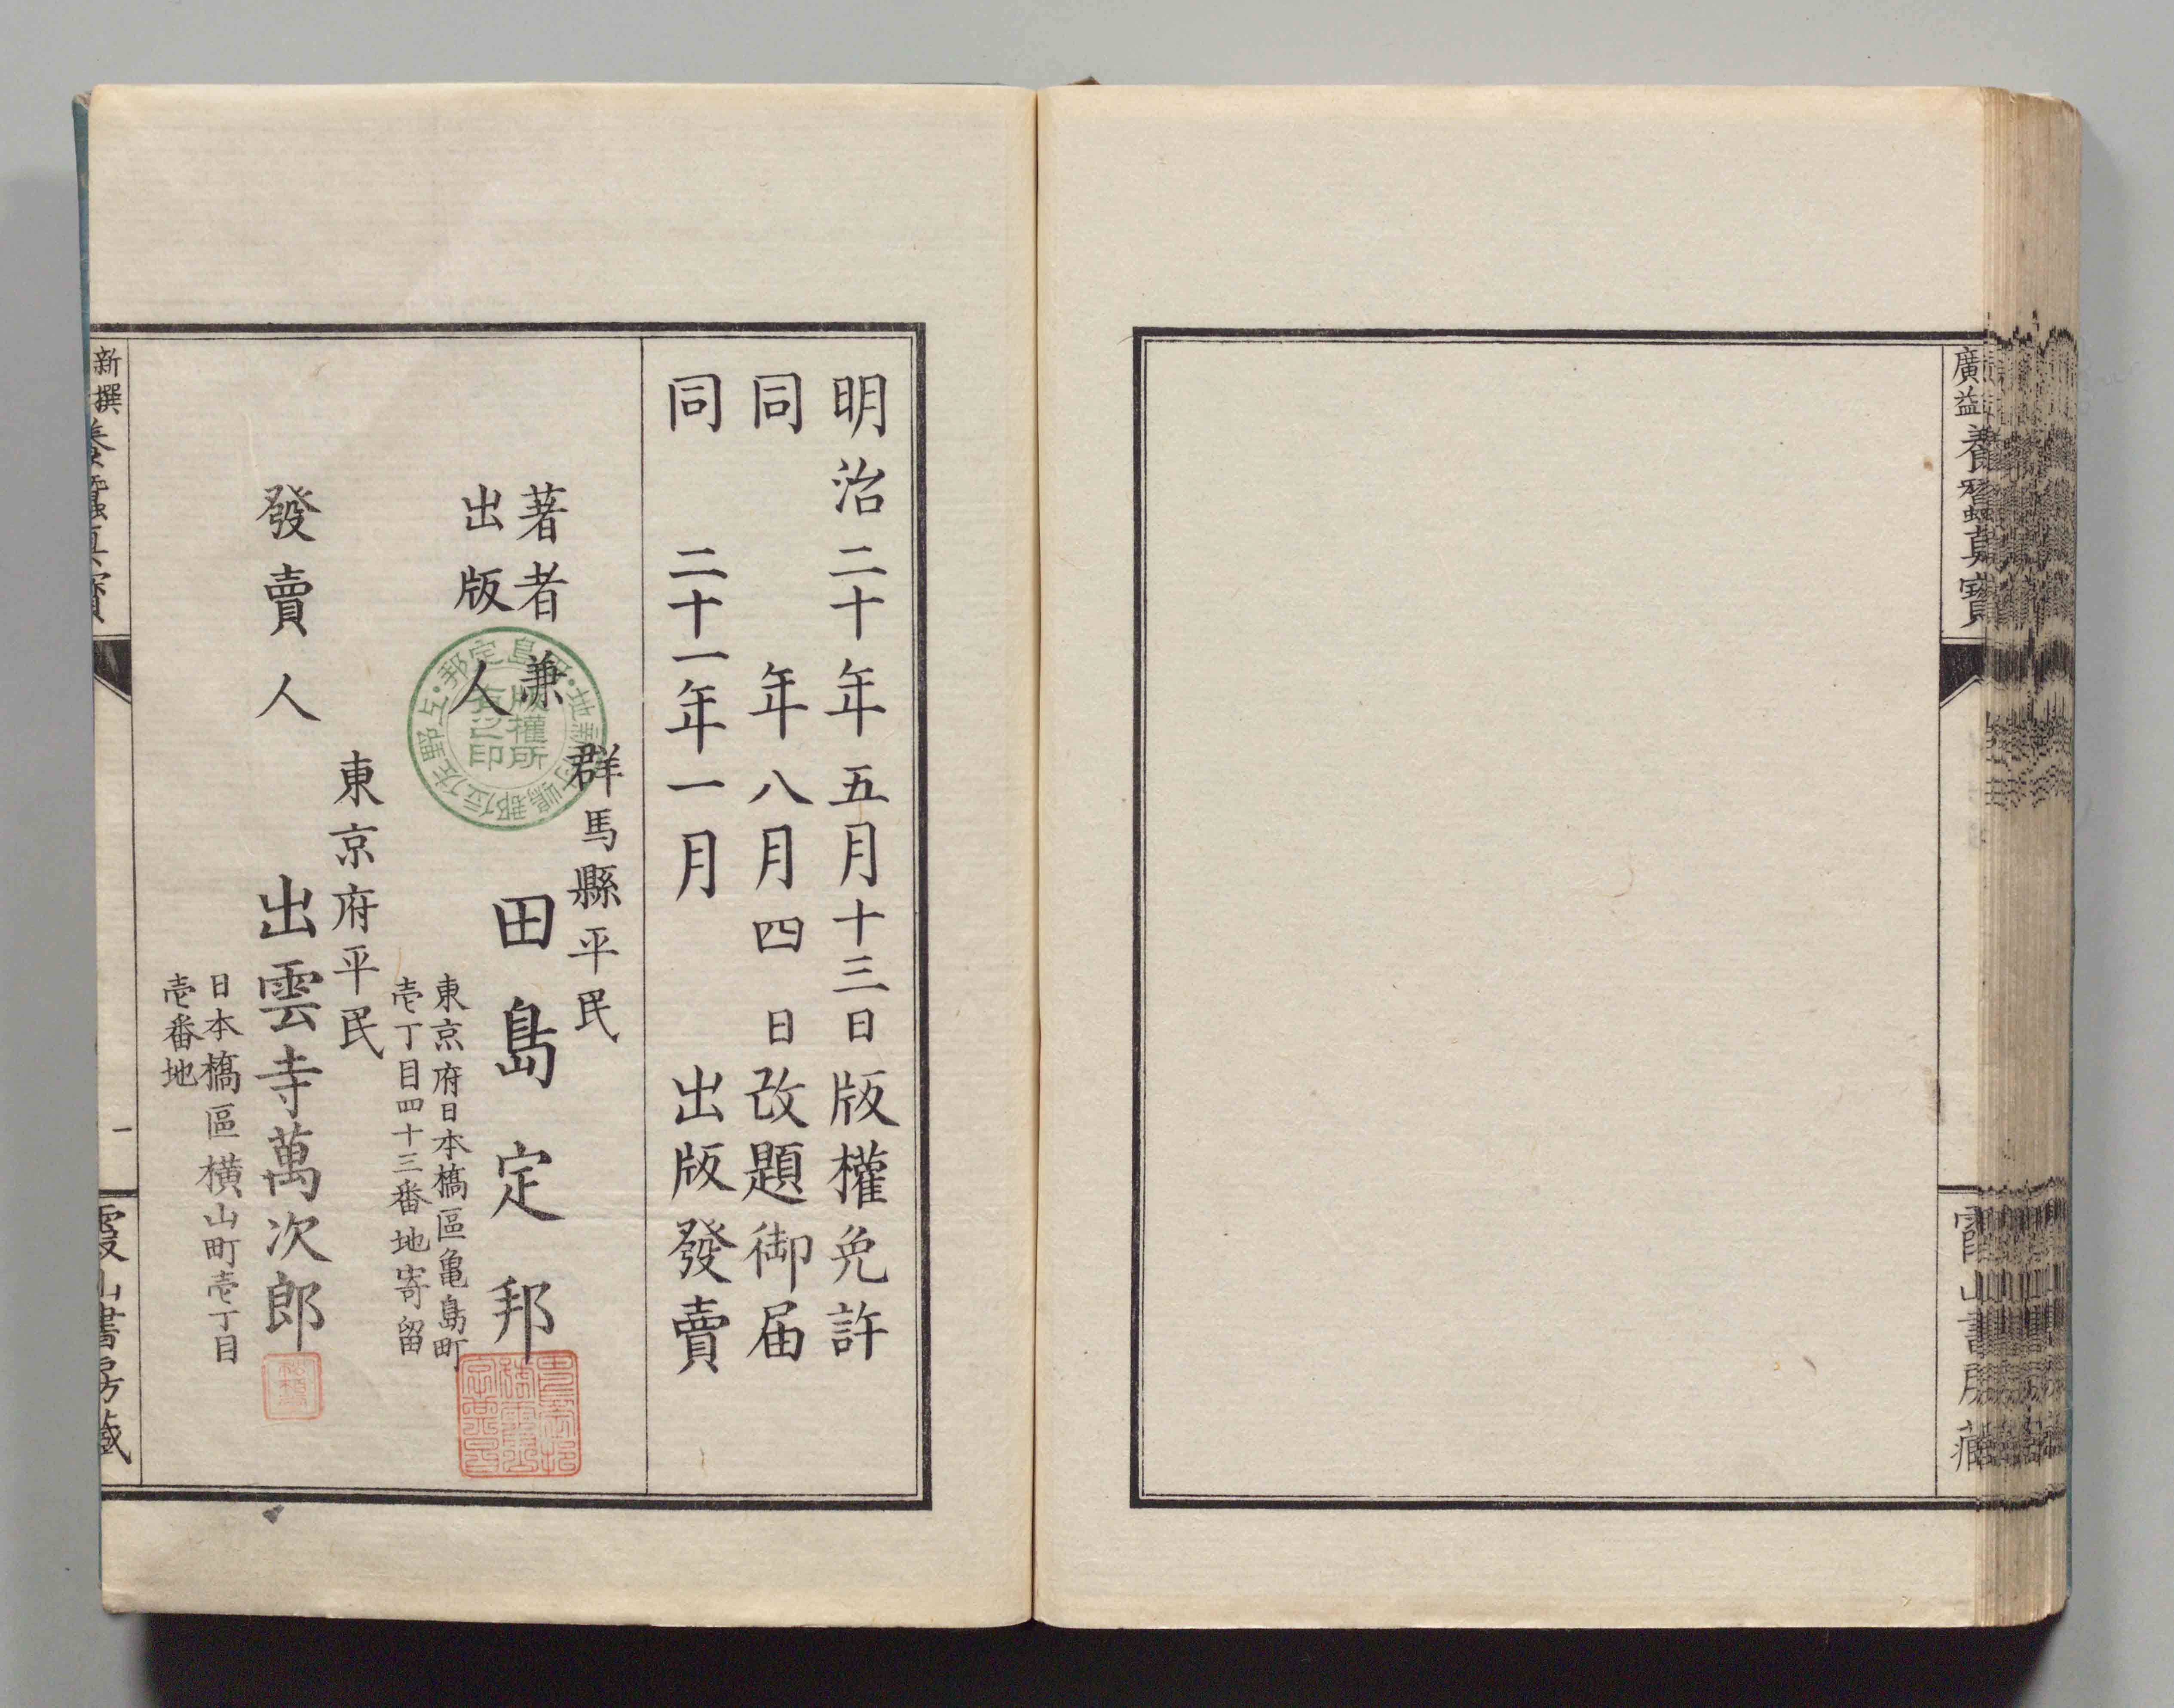 廣益養蠶真寶
霞山書房藏
明治二十年五月十三日版權免許
同　　　年八月四　日改題御届
同　二十一年一月　　出版發賣
群馬縣平民
著者兼
出版人
田島定邦
東京府日本橋區亀島町
壱丁目四十三番地寄留
版權所
有之印
東京府平民
發賣人
出雲寺萬次郎
日本橋區横山町壱丁目
壱番地
新撰養蠶真寶
一
霞山書房藏